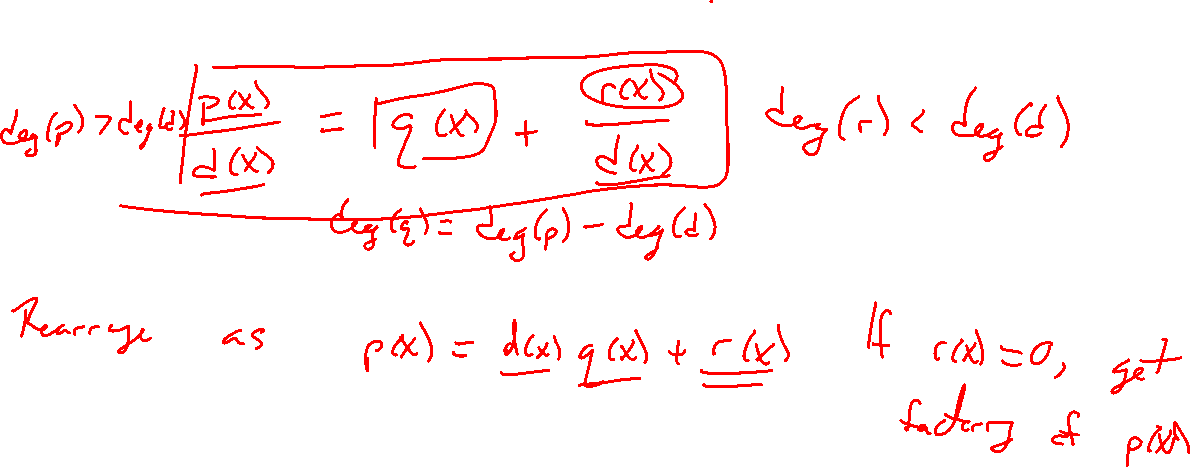 deg(p) > deg(d) p(x)/d(x) = q(x) + r(x)/d(x) deg(r) < deg(d)
deg(q) = deg(p) - deg(d)
Rearrange as p(x) = d(x) q(x) + r(x) If r(x) = 0, get
factoring of p(x)